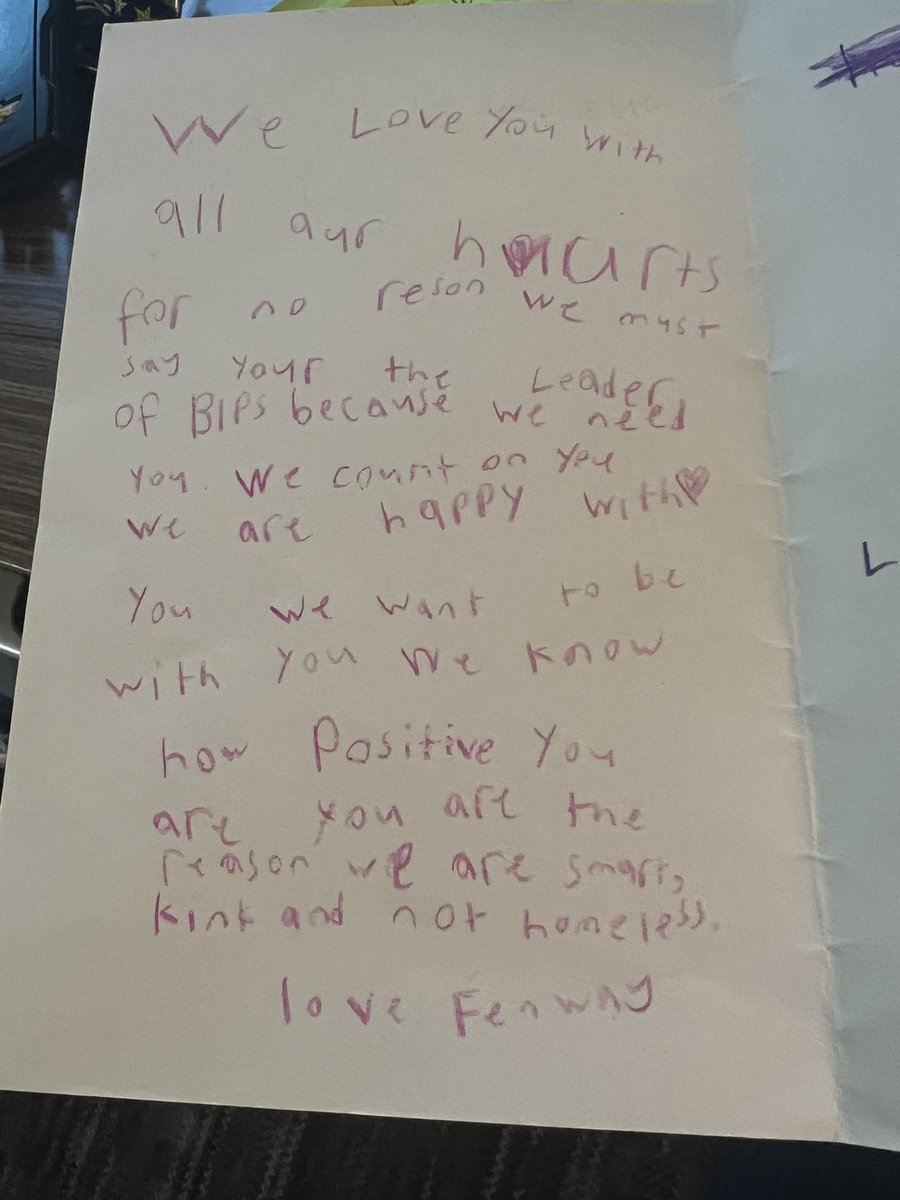 We Love You with
all our haurts
for no reson we must
say your the Leader
of BIPS because we need
you. We count on you
we are happy with
You we want to be
with you we know
how Positive You
are you are the
reason we are smart,
kink and not homeless.
love Fenway
L